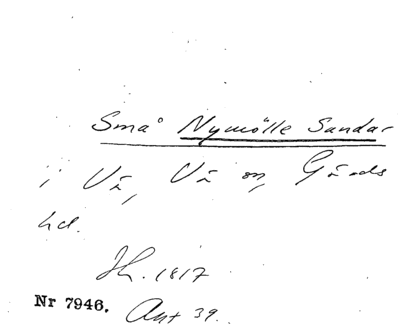 Små Nymölle Sandar
i Vä, Vä sn, Gärds
hd.
Jh. 1817
Nr 7946. Ant 39.